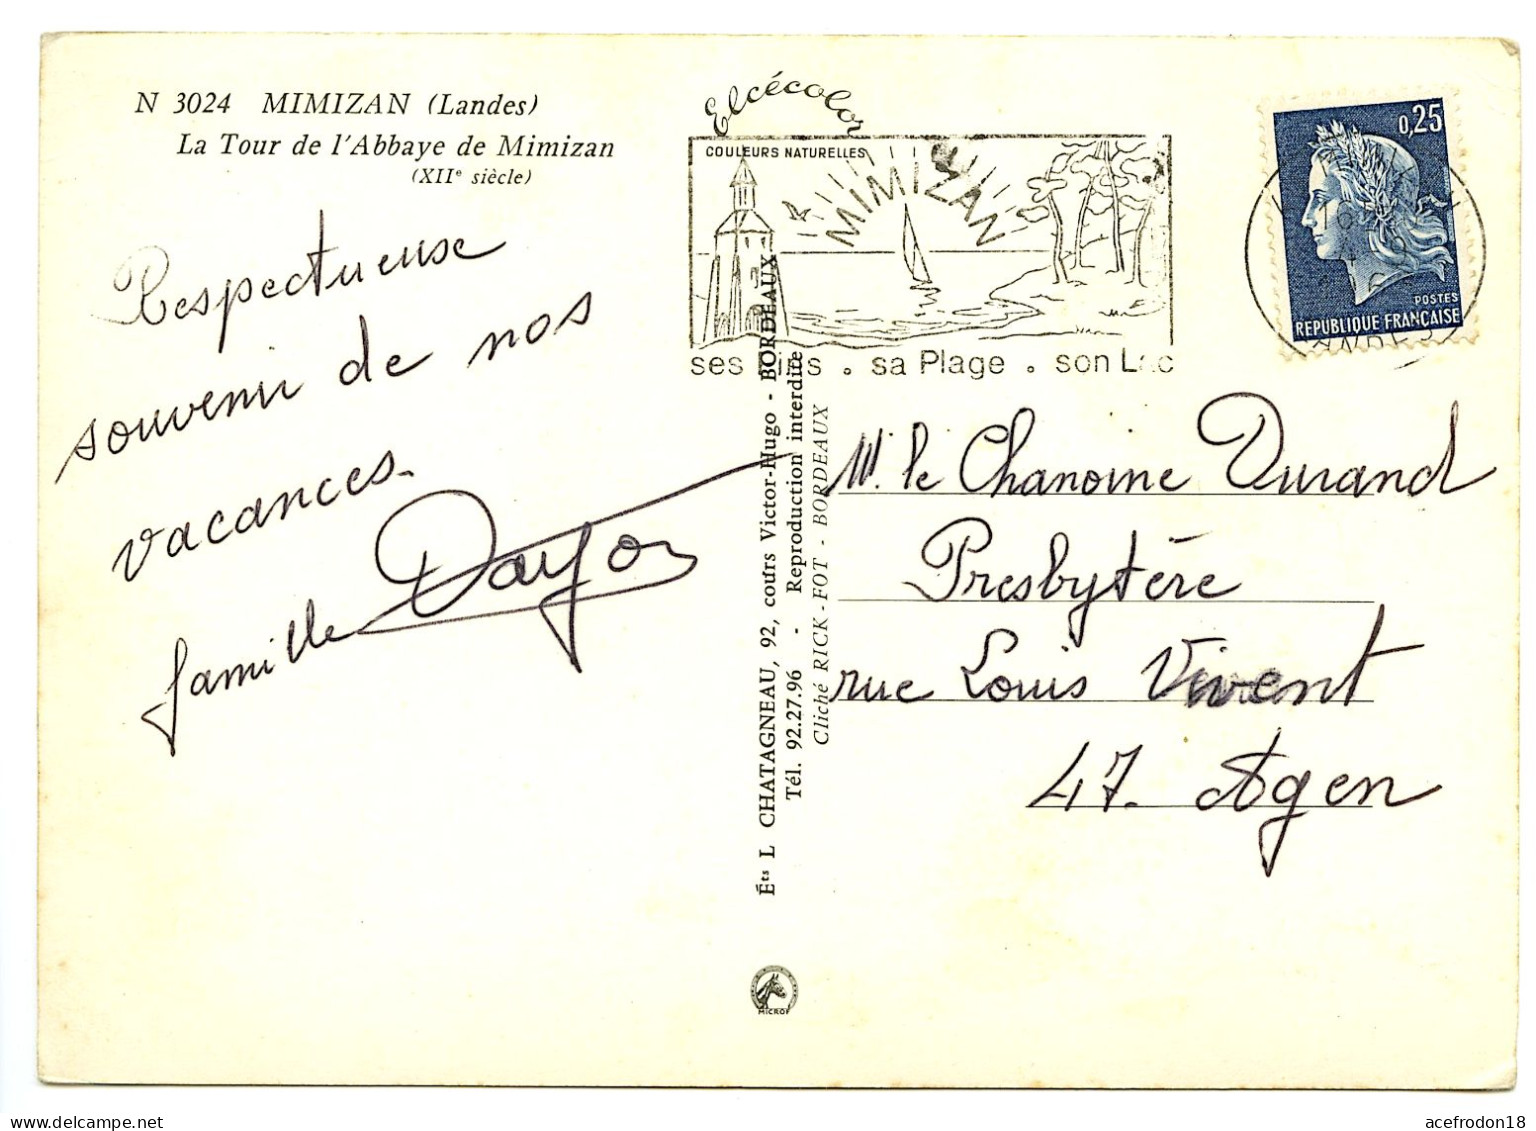 N 3024 MIMIZAN (Landes)
La Tour de l'Abbaye de Mimizan
(XIIe siècle)
Respectueuse
souvenir de nos
vacances.
famille
Elcécolor
COULEURS NATURELLES
MIMIZAN
ses Pins . sa Plage . son Lac
Éts L CHATAGNEAU, 92, cours Victor-Hugo - BORDEAUX
Tél. 92.27.96 - Reproduction interdite
Cliché RICK-FOT - BORDEAUX
MICROF
0,25
POSTES
REPUBLIQUE FRANÇAISE
LANDES
M. le Chanoine Durand
Presbytère
rue Louis Vivent
47. Agen
acefrodon18